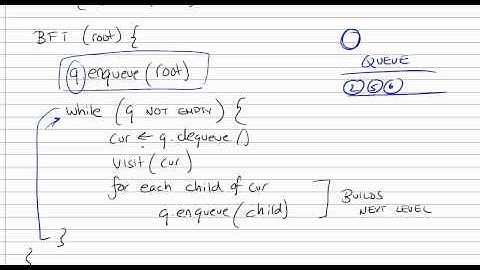 BFT (root) {
q.enqueue(root)
while (q NOT EMPTY) {
cur ← q.dequeue()
visit(cur)
for each child of cur
q.enqueue(child)
}
}
QUEUE
2 5 6
BUILDS
NEXT LEVEL